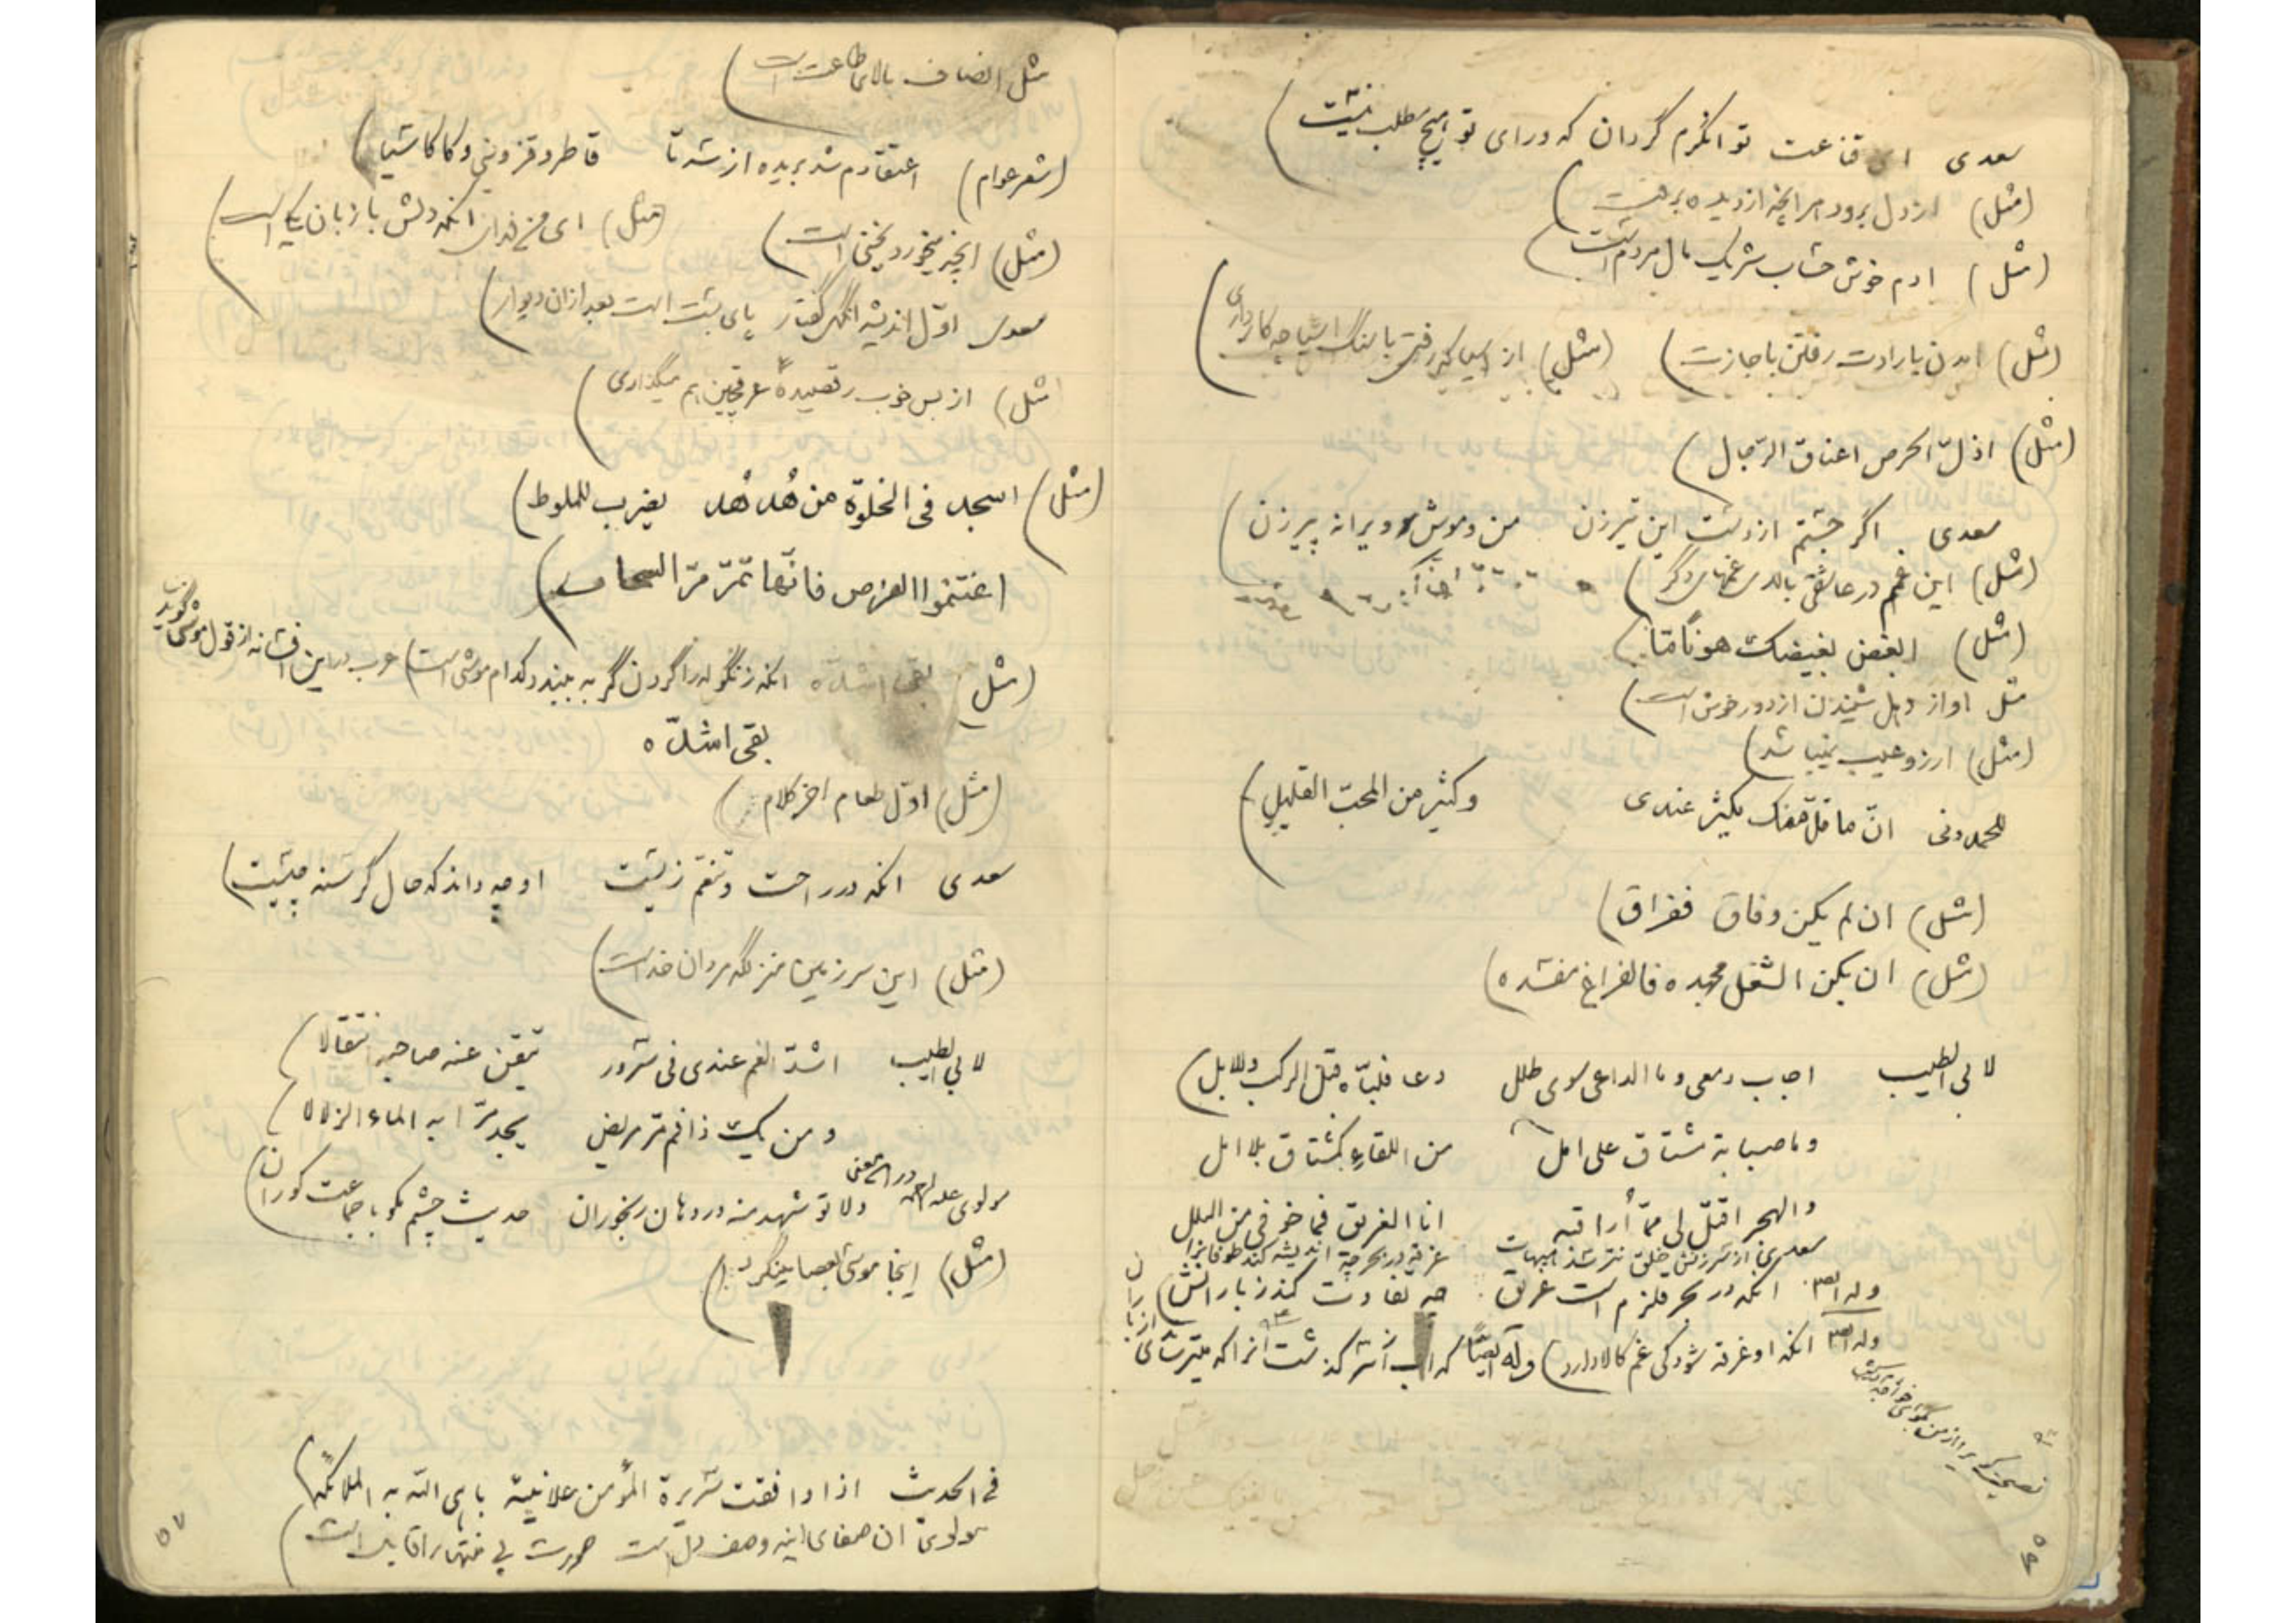 سعدی ای قناعت توانگرم گردان که ورای تو هیچ مطلب نیست
(مثل) از دل برود هر انچه از دیده برفت
(مثل) ادم خوش حساب شریک مال مردم است
(مثل) امدن بارادت رفتن باجازت (مثل) از اسیا که رفتی با سنگ اسیا چه کار داری
(مثل) اذلّ الحرص اعناق الرّجال
سعدی اگر جستم از دست این تیرزن من و موش و ویرانه پیرزن
(مثل) این غم در عاشقی بالای غمهای دگر
(مثل) ابغض بغیضک هوناً مّا
مثل اواز دهل شنیدن از دور خوش است
(مثل) ارزو عیب نمیباشد
للحمدونی انّ ما قلّ منک یکثر عندی وکثیر من المحبّ القلیل
(مثل) ان لم یکن وفاق ففراق
(مثل) ان یکن الشغل مجهده فالفراغ مفسده
لابی الطیب اجاب دمعی وما الداعی سوی طلل دعا فلبّاه قبل الرکب والابل
وما صبابة مشتاق علی امل من اللقاء کمشتاق بلا امل
والهجر اقتل لی ممّا أراقبه انا الغریق فما خوفی من البلل
سعدی از سرزنش خلق نترسد هیهات غرقه در بحر چه اندیشه کند طوفانرا
وله ایضا انکه در بحر قلزم است غریق چه تفاوت کند ز بارانش
وله ایضا انکه او غرقه شود کی غم کالا دارد) وله ایضاً که اب از سر گذشت انرا که میترسانی از باران را
نصیحت از من بگوی خواجه
۵۶
مثل انصاف بالای طاعت است
(شعر عوام) اعتقادم شد بریده از سه تا قاطر و قزوینی و کاکاسیا
(مثل) انجیر میخورد یخنی است (مثل) ای من فدای انکه دلش با زبان یکیاست
سعدی اوّل اندیشه انگهی گفتار پای بست است بعد از ان دیوار
(مثل) از بس خوب رقصیده عرقچین هم میگذاری
(مثل) اسجد فی الخلوة من هُدهُد یضرب للملوط
اغتنموا الفرص فانّها تمرّ مرّ السحاب
(مثل) بقی اشدّه انکه زنگوله را گردن گربه ببندد کدام موش است) عرب در این افسانه از قول موش گویند
بقی اشدّه
(مثل) اوّل طعام اخر کلام
سعدی انکه در راحت و تنعّم زیست او چه داند که حال گرسنه چیست
(مثل) این سرزمین منزلگه مردان خداست
لابی الطیب اشدّ الغم عندی فی سرور تیقّن عنه صاحبه انتقالا
ومن یک ذا فم مرّ مریض یجد مرّا به الماء الزلالا
مولوی علیه الرحمه در این معنی دلا تو شهد منه در دهان رنجوران حدیث چشم مگو با جماعت کوران
(مثل) اینجا موسی بعصا میگردد
فی الحدیث اذا وافقت سریرة المؤمن علانیته باهی الله به الملائکة
مولوی ان صفای اینه وصف دل است صورت بی منتها را قابل است
۵۷